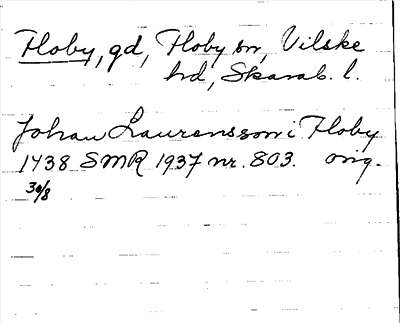 Floby, gd, Floby sn, Vilske
hd, Skarab. l.
Johan Laurensson i Floby
1438 SMR 1937 nr. 803. orig.
30/8